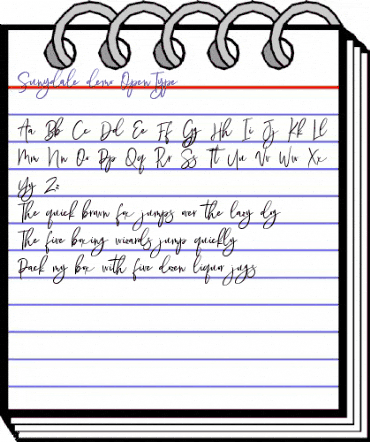 Sunydale demo OpenType
Aa Bb Cc Dd Ee Ff Gg Hh Ii Jj Kk Ll
Mm Nn Oo Pp Qq Rr Ss Tt Uu Vv Ww Xx
Yy Zz
The quick brown fox jumps over the lazy dog
The five boxing wizards jump quickly
Pack my box with five dozen liquor jugs